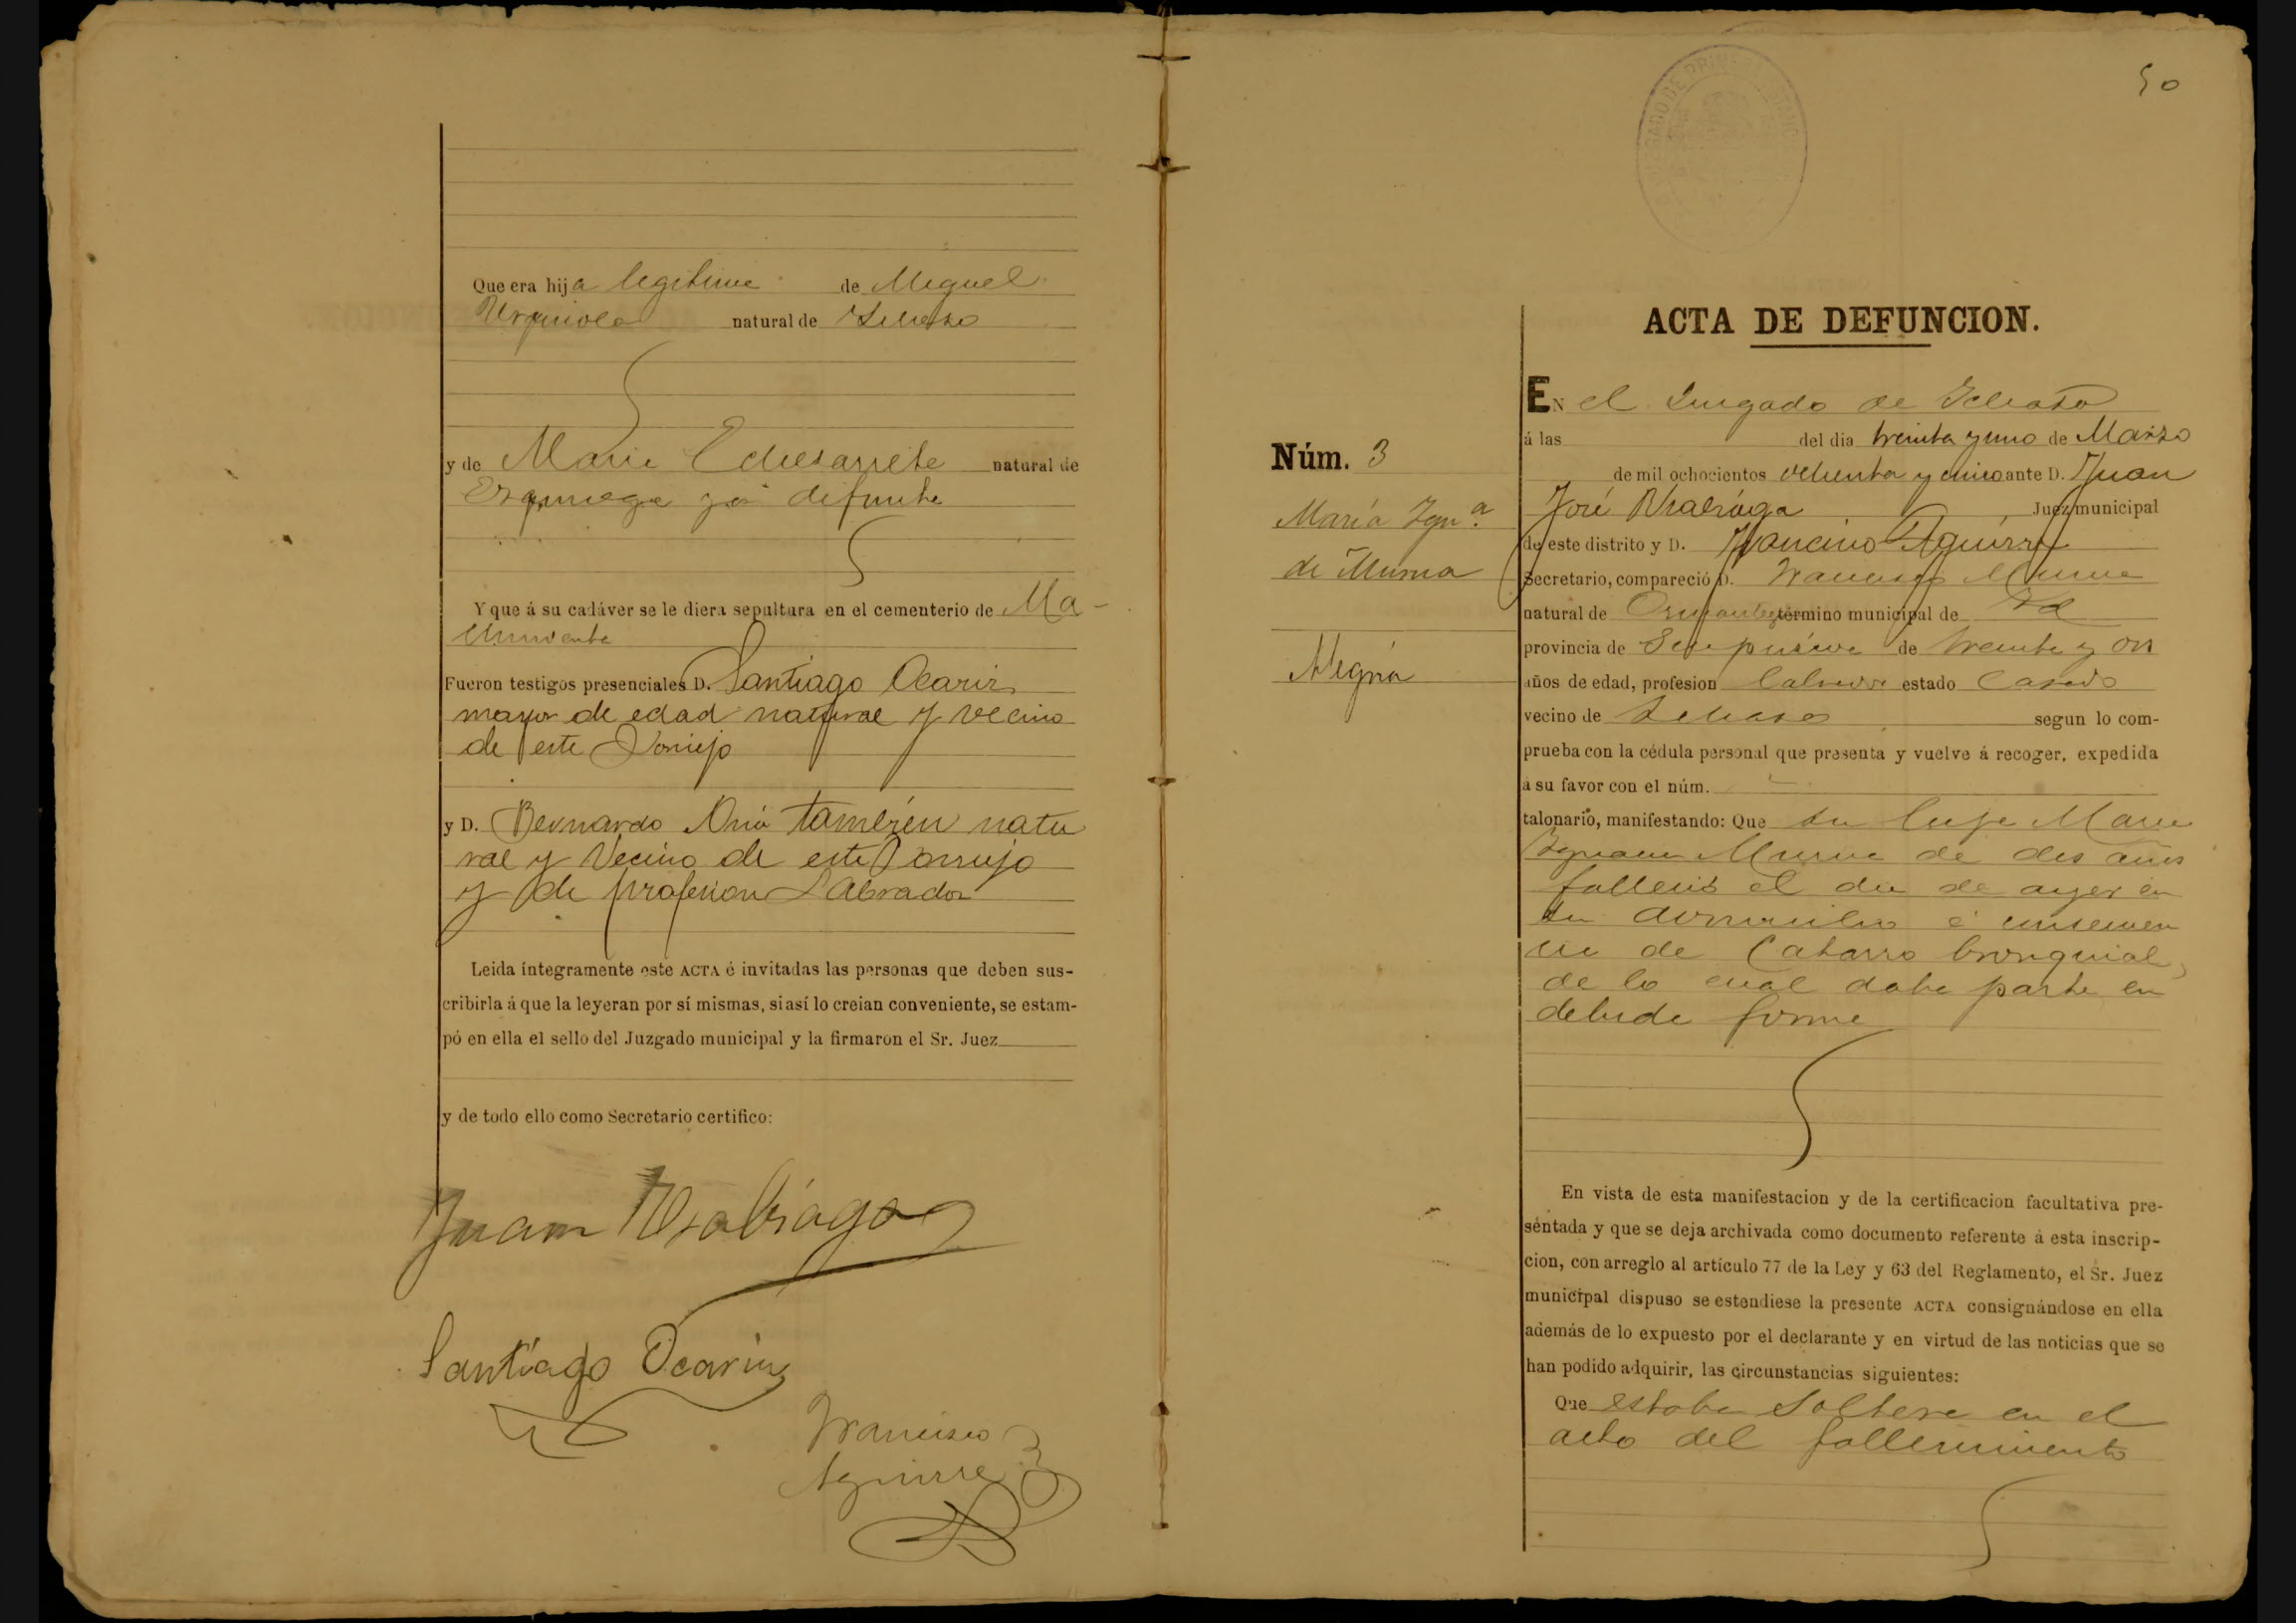 Que era hija legitima de Miguel
Urquiola natural de
y de Maria Echezarreta natural de
Ezquioga ya difunta
Y que á su cadáver se le diera sepultura en el cementerio de
Fueron testigos presenciales D. Santiago Ocariz
mayor de edad natural y vecino
de este Concejo
y D. Bernardo también natu
ral y Vecino de este Concejo
y de profesion Labrador
Leida íntegramente este ACTA é invitadas las personas que deben sus-
cribirla á que la leyeran por sí mismas, si así lo creian conveniente, se estam-
pó en ella el sello del Juzgado municipal y la firmaron el Sr. Juez
y de todo ello como Secretario certifico:
Juan Usabiaga
Santiago Ocariz
Francisco
Aguirre
50
ACTA DE DEFUNCION.
EN el Juzgado de
á las del dia treinta y uno de Marzo
de mil ochocientos ochenta y cinco ante D. Juan
José Usabiaga Juez municipal
de este distrito y D. Francisco Aguirre
Secretario, compareció D. Francisco Murua
natural de término municipal de Id
provincia de Guipuzcoa de treinta y
años de edad, profesion Labrador estado Casado
vecino de segun lo com-
prueba con la cédula personal que presenta y vuelve á recoger, expedida
á su favor con el núm.
talonario, manifestando: Que su hija Maria
Ignacia Murua de dos años
falleció el dia de ayer en
su domicilio á consecuen
cia de Catarro bronquial,
de lo cual daba parte en
debida forma
En vista de esta manifestacion y de la certificacion facultativa pre-
sentada y que se deja archivada como documento referente á esta inscrip-
cion, con arreglo al artículo 77 de la Ley y 63 del Reglamento, el Sr. Juez
municipal dispuso se estendiese la presente ACTA consignándose en ella
además de lo expuesto por el declarante y en virtud de las noticias que se
han podido adquirir, las circunstancias siguientes:
Que estaba Soltera en el
acto del fallecimiento
Núm. 3
María Ign.ª
de Murua
Alegria